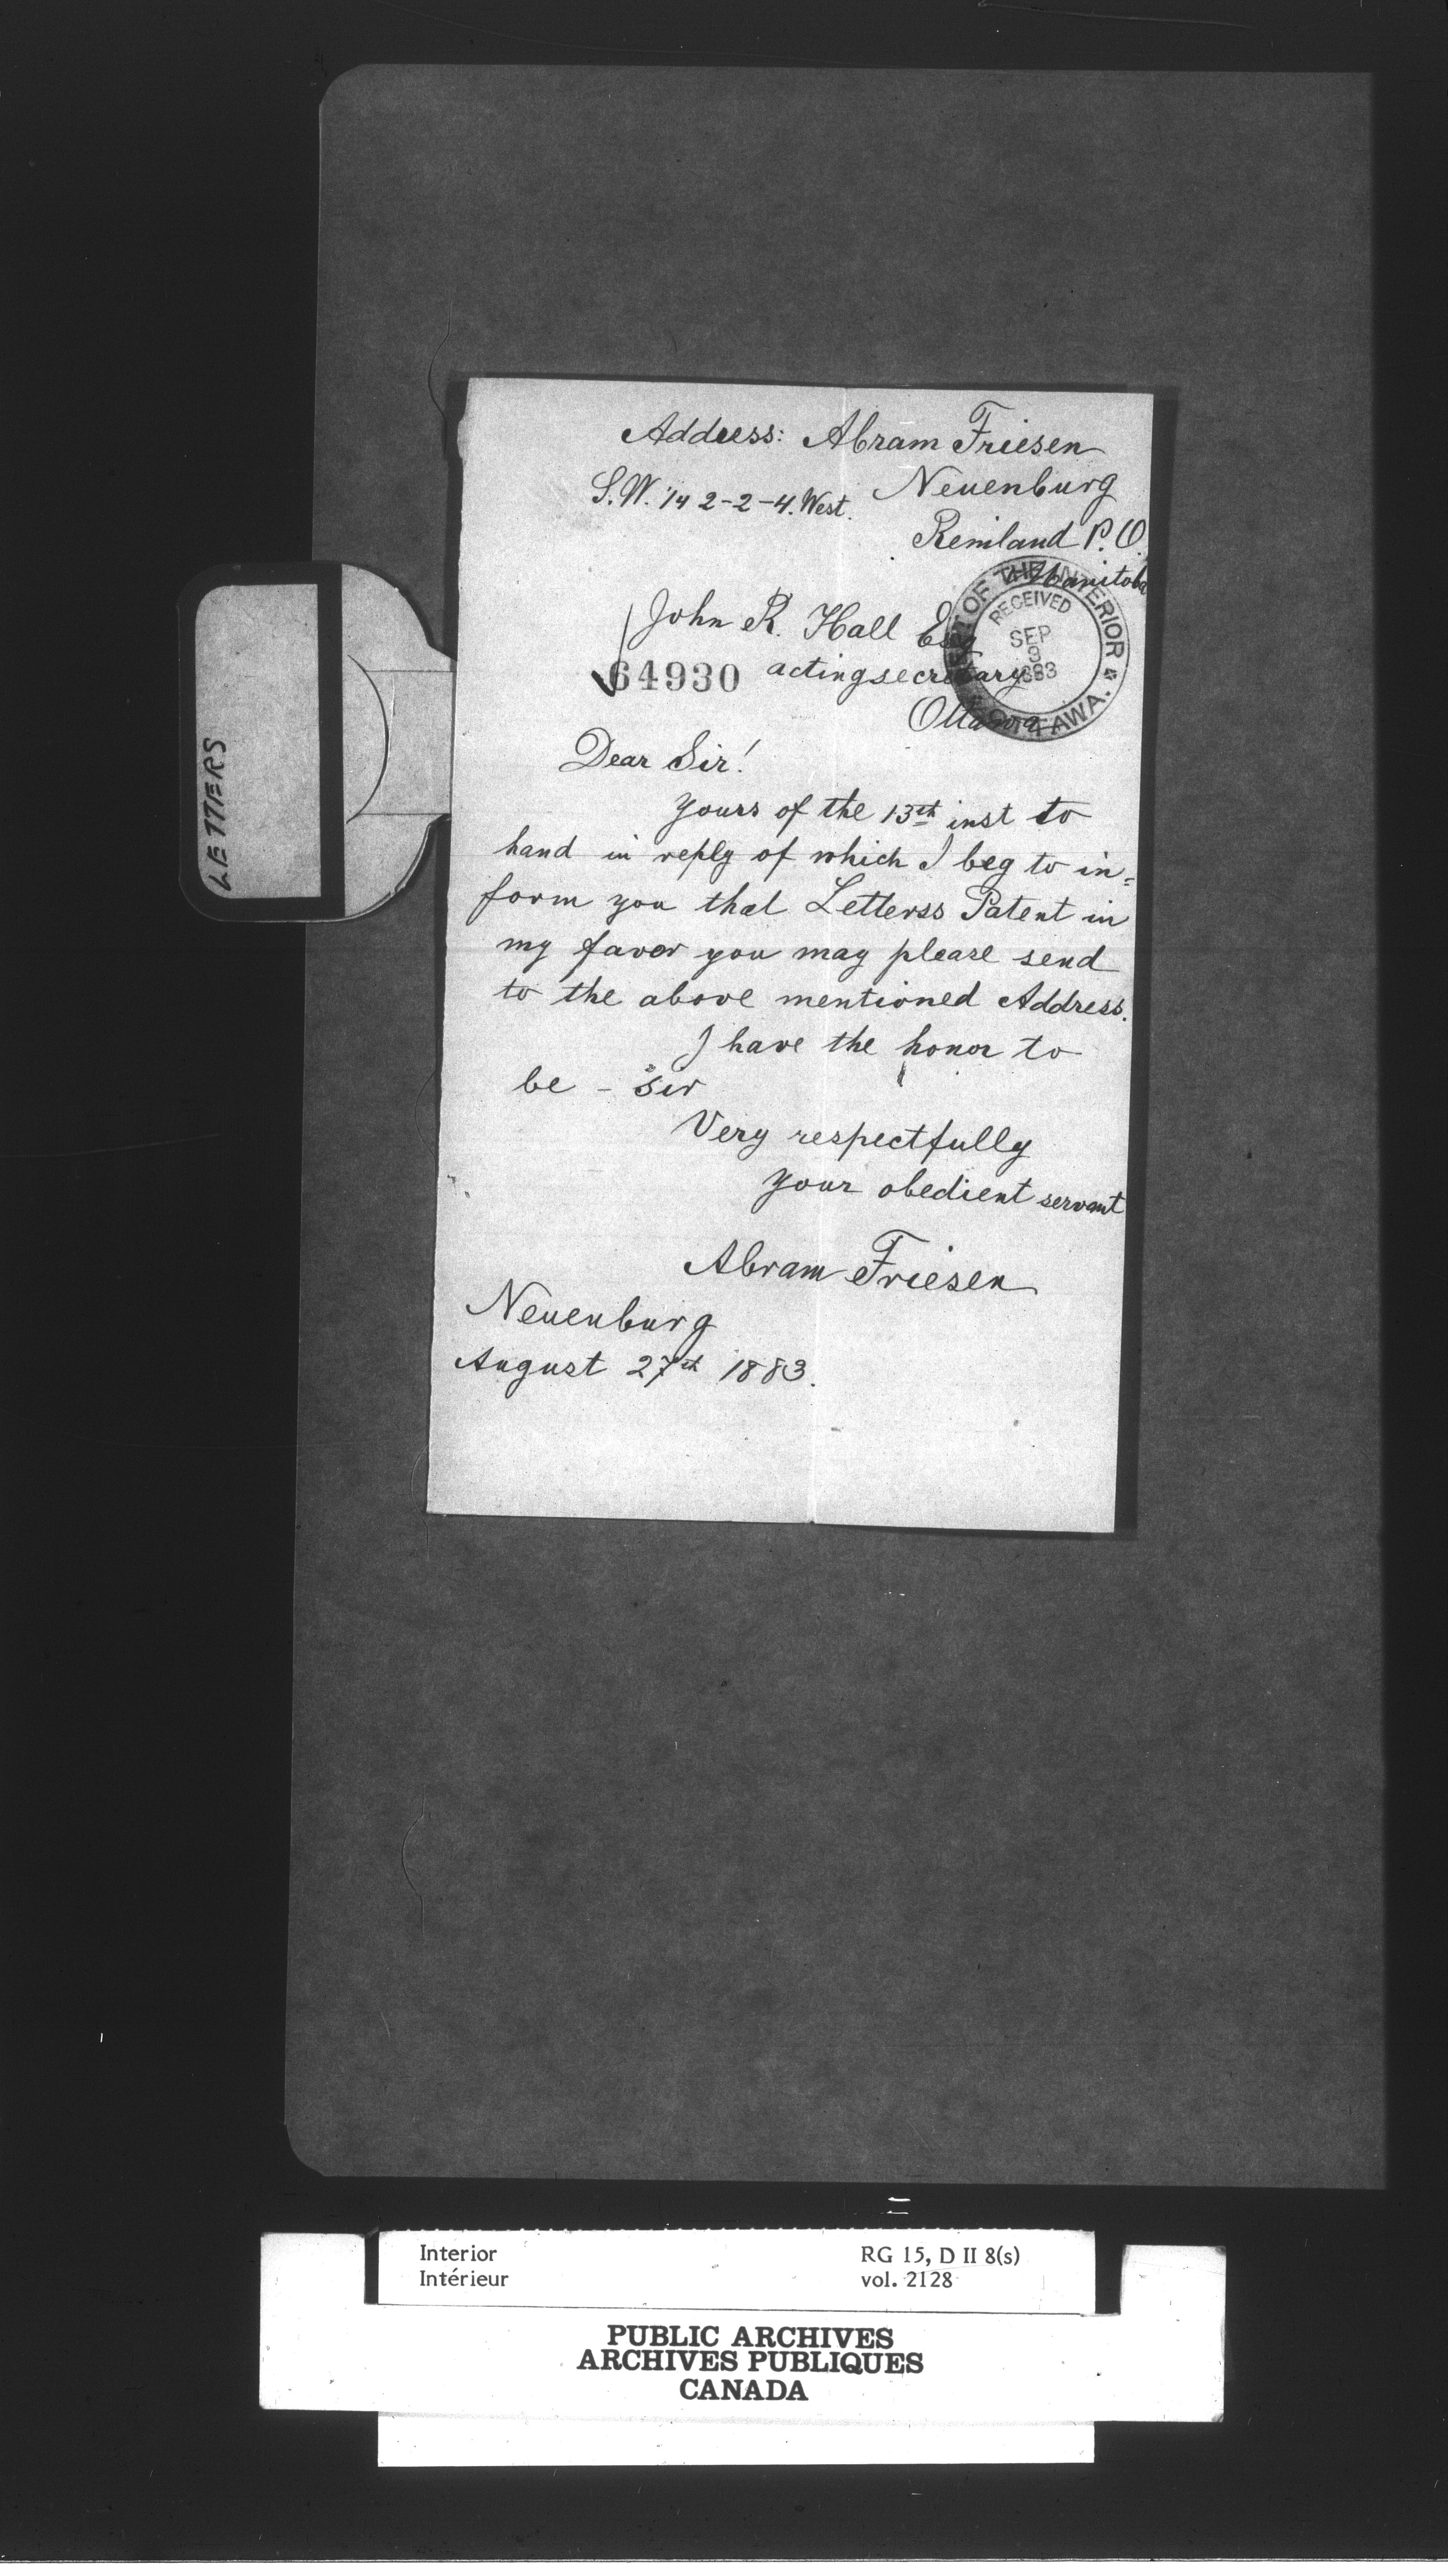 Address: Abram Friesen
S.W. 1/4 2-2-4. West. Neuenburg
Reinland P. O.
Manitoba
DEPT OF THE INTERIOR
RECEIVED
SEP
9
1883
OTTAWA.
John R. Hall Esq
64930 acting secretary
Ottawa
Dear Sir!
Yours of the 13th inst to
hand in reply of which I beg to in=
form you that Letterss Patent in
my favor you may please send
to the above mentioned Address.
I have the honor to
be – Sir
Very respectfully
your obedient servant
Abram Friesen
Neuenburg
August 27th 1883.
LETTERS
Interior RG 15, D II 8(s)
Intérieur vol. 2128
PUBLIC ARCHIVES
ARCHIVES PUBLIQUES
CANADA